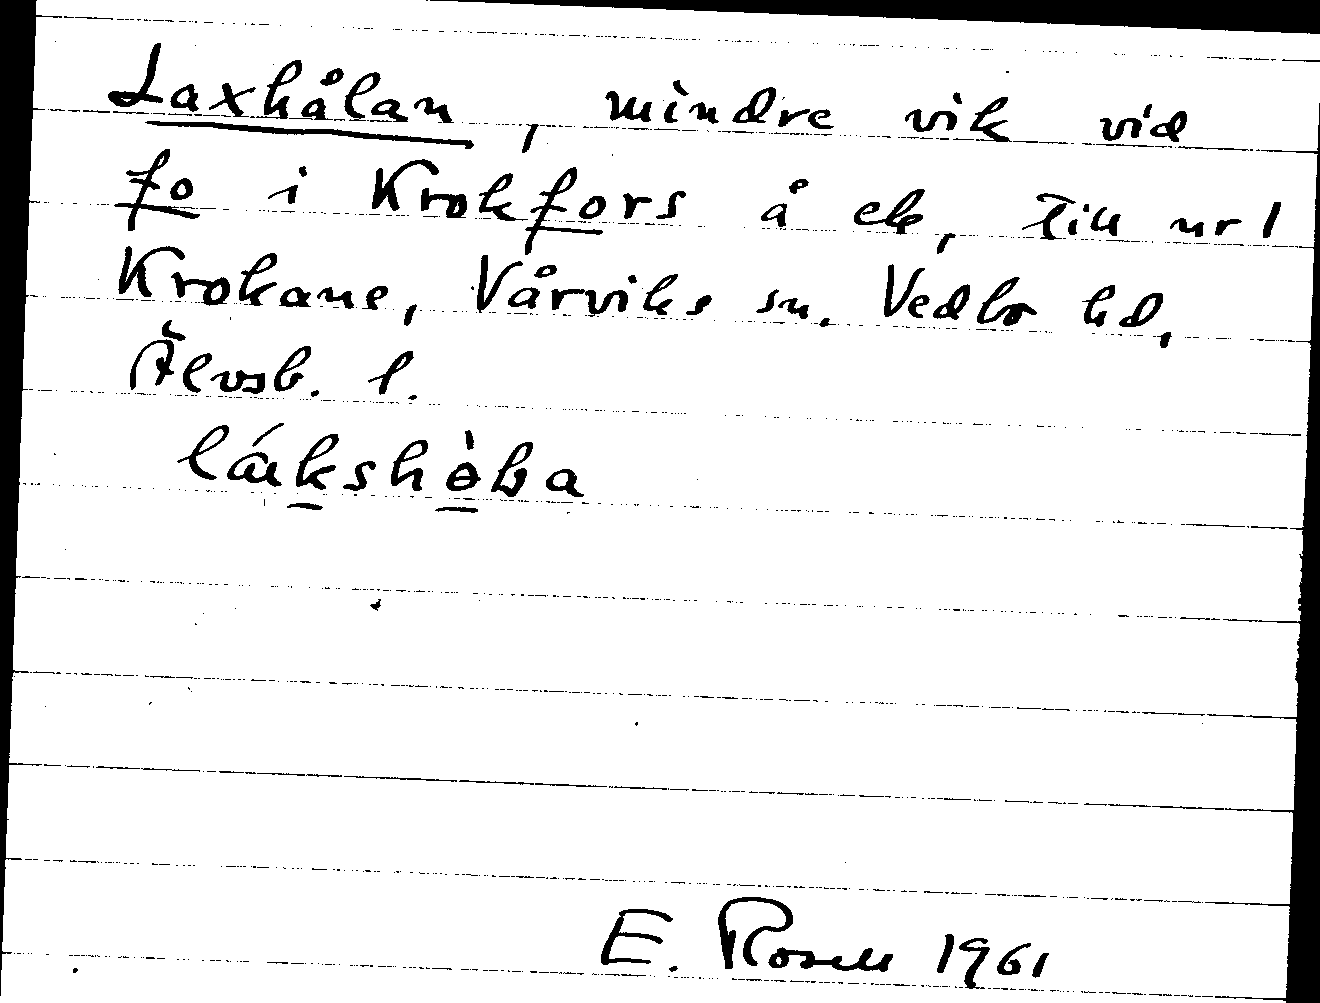 Laxhålan, mindre vik vid
fo i Krokfors å ek, till nr 1
Krokane, Vårviks sn. Vedbo hd,
Älvsb. l.
E. Rosell 1961